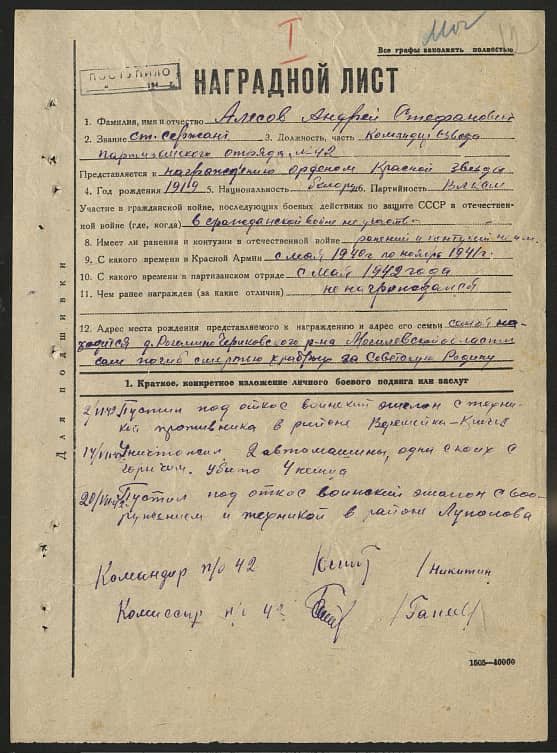 I
Все графы заполнять полностью
ПОСТУПИЛО
НАГРАДНОЙ ЛИСТ
1. Фамилия, имя и отчество Андрей Стефанович
2. Звание ст. сержант 3. Должность, часть Командир взвода
партизанского отряда №42
Представляется к награждению орденом Красной звезды
4. Год рождения 1919 5. Национальность белорус 6. Партийность
Участие в гражданской войне, последующих боевых действиях по защите СССР в отечествен-
ной войне (где, когда) в гражданской войне не участв.
8. Имеет ли ранения и контузии в отечественной войне ранений и контузий
9. С какого времени в Красной Армии с май 1940г по ноябрь 1941г.
10. С какого времени в партизанском отряде с май 1942 года
11. Чем ранее награжден (за какие отличия) не награждался
12. Адрес места рождения представляемого к награждению и адрес его семьи семья на-
ходится д. Чериковского р-на Могилевской области
сам погиб смертью храбрых за Советскую Родину
Для подшивки
1. Краткое, конкретное изложение личного боевого подвига или заслуг
Пустил под откос воинский эшелон с техни-
кой противника в районе Веремейка-
Уничтожил 2 автомашины, одна с
горючим. убито 4 немца
Пустил под откос воинский эшелон с воо-
ружением и техникой в районе Луполова
Командир п/о 42 /Никитин
Комиссар п/о 42
1505—40000